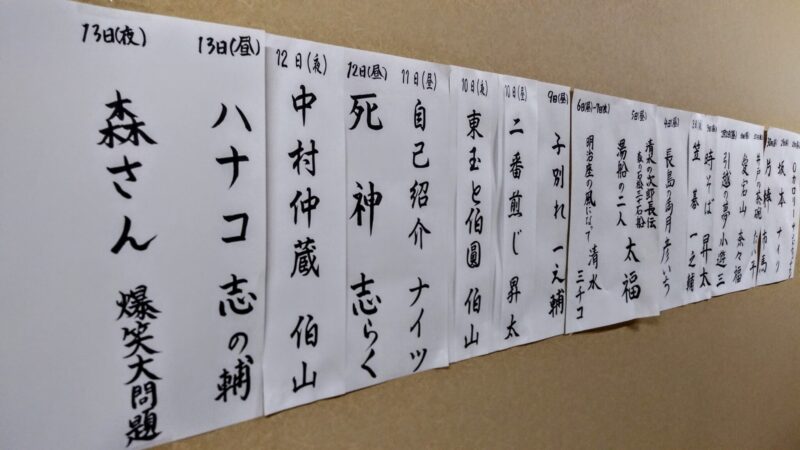 坂本 ナイツ
片棒 市馬
井戸の茶碗 たい平
愛宕山 奈々福
引越の夢 小遊三
時そば 昇太
笠碁 一之輔
4日(昼)
長島の満月 彦いち
5日(昼)
清水の次郎長伝
森の石松三十石船
湯船の二人 太福
6日(昼)~7日(夜)
明治座の風になって 清水ミチコ
9日(昼)
子別れ 一之輔
10日(昼)
二番煎じ 昇太
10日(夜)
東玉と伯圓 伯山
11日(昼)
自己紹介 ナイツ
12日(昼)
死神 志らく
12日(夜)
中村仲蔵 伯山
13日(昼)
ハナコ 志の輔
13日(夜)
森さん 爆笑大問題